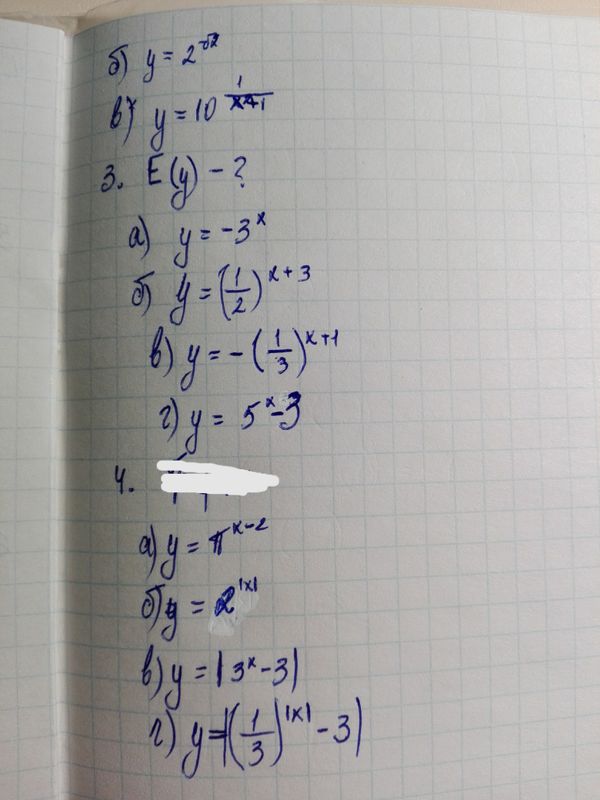 б) y = 2^√2
в) y = 10^(1/(x+1))
3. E(y) - ?
а) y = -3^x
б) y = (1/2)^(x+3)
в) y = -(1/3)^(x+1)
г) y = 5^x-3
4.
а) y = π^(x-2)
б) y = 2^|x|
в) y = |3^x - 3|
г) y = |(1/3)^|x| - 3|